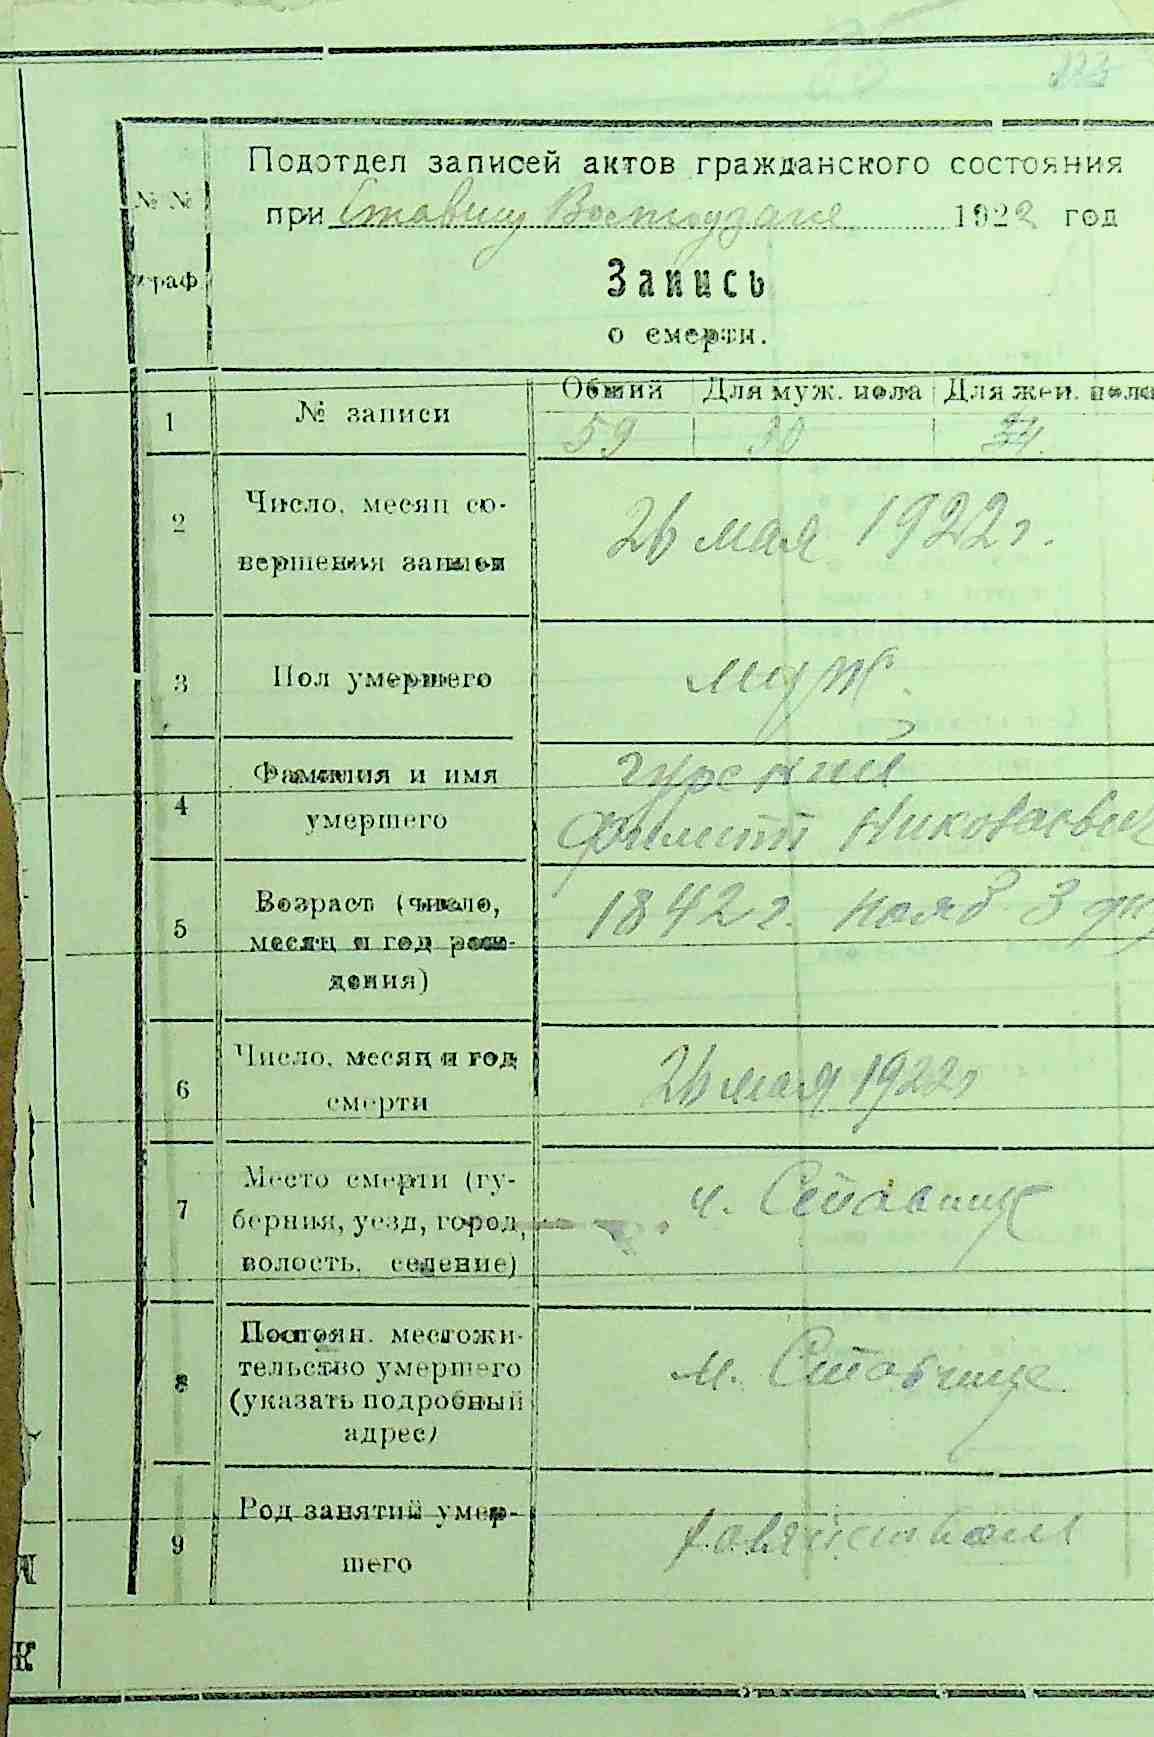 Подотдел записей актов гражданского состояния
при Ставищ 1922 год
№ №
граф
Запись
о смерти.
Общий Для муж. пола Для жен. пола
1 № записи 59 30
2 Число, месяц со-
вершения записи
26 мая 1922 г.
3 Пол умершего муж.
4 Фамилия и имя
умершего
Гурский
Филипп Николаевич
5 Возраст (число,
месяц и год рож-
дения)
1842 г. нояб 3 дн
6 Число, месяц и год
смерти
26 мая 1922 г
7 Место смерти (гу-
берния, уезд, город,
волость, селение)
м. Ставище
8 Постоян. местожи-
тельство умершего
(указать подробный
адрес)
м. Ставище
9 Род занятий умер-
шего
К